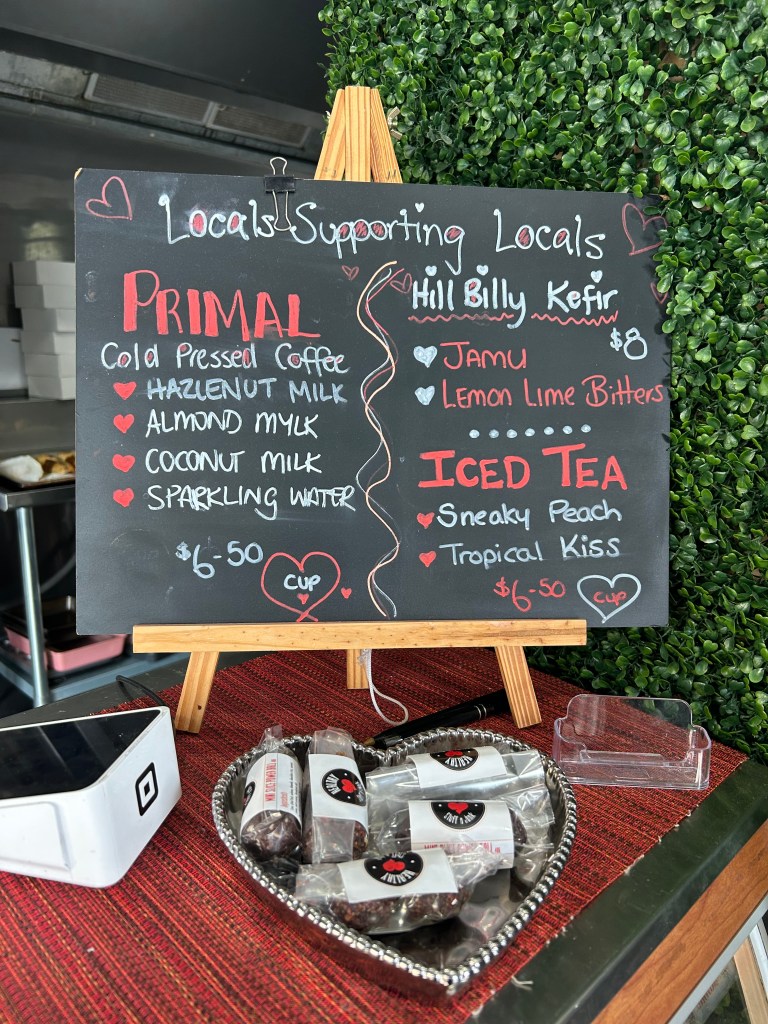 Locals Supporting Locals
PRIMAL
Cold Pressed Coffee
HAZLENUT MILK
ALMOND MYLK
COCONUT MILK
SPARKLING WATER
$6-50
CUP
Hill Billy Kefir
$8
JAMU
LEMON LIME BITTERS
ICED TEA
Sneaky Peach
Tropical Kiss
$6-50
CUP